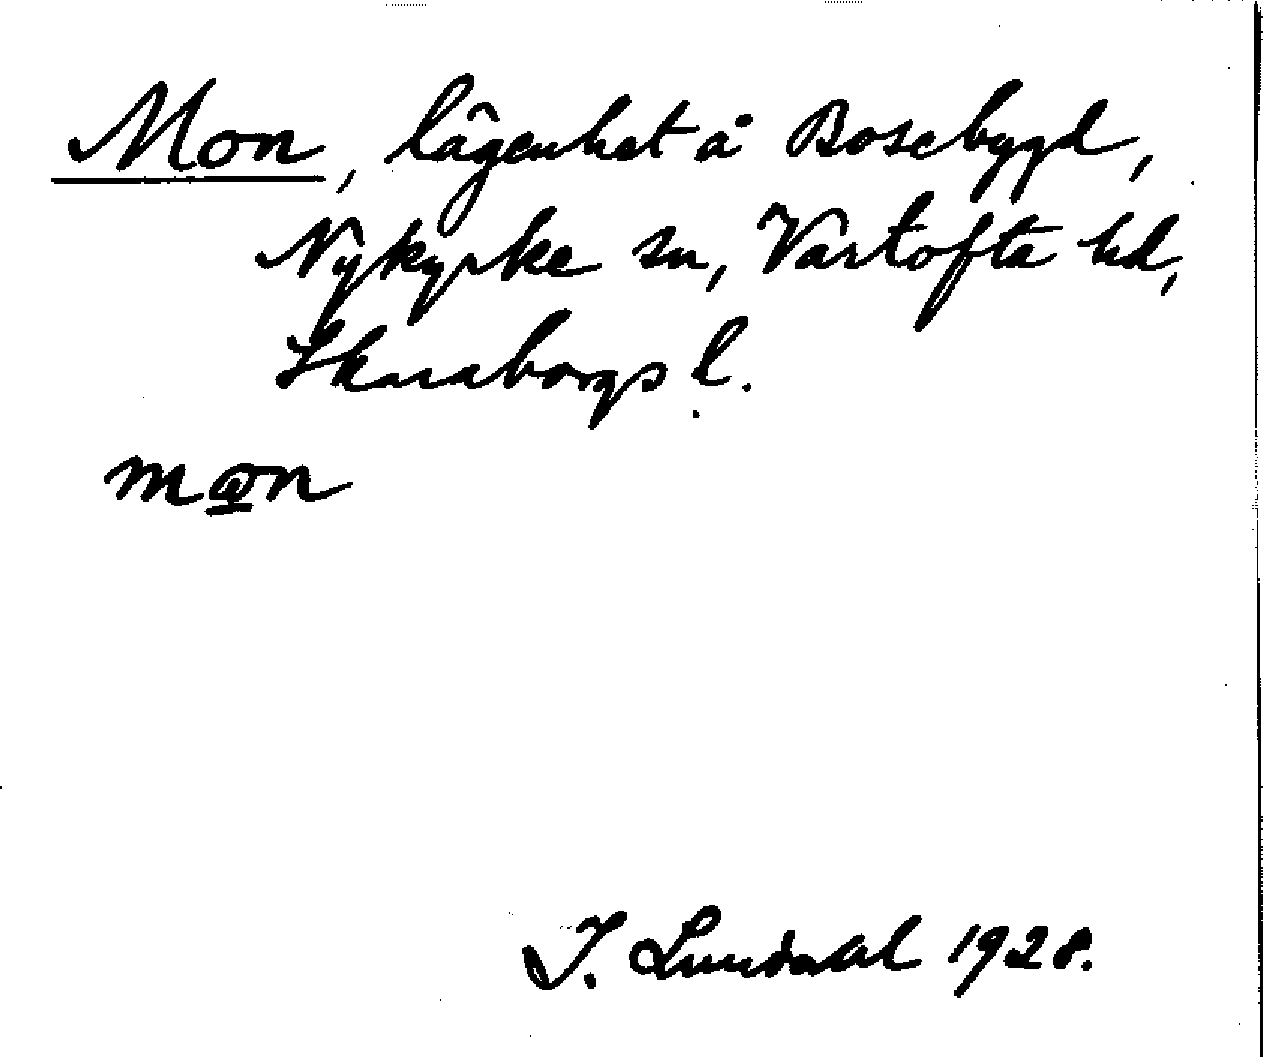 Mon, lägenhet å Bosebygd,
Nykyrke sn, Vartofta hd,
Skaraborgs l.
I. Lundahl 1928.